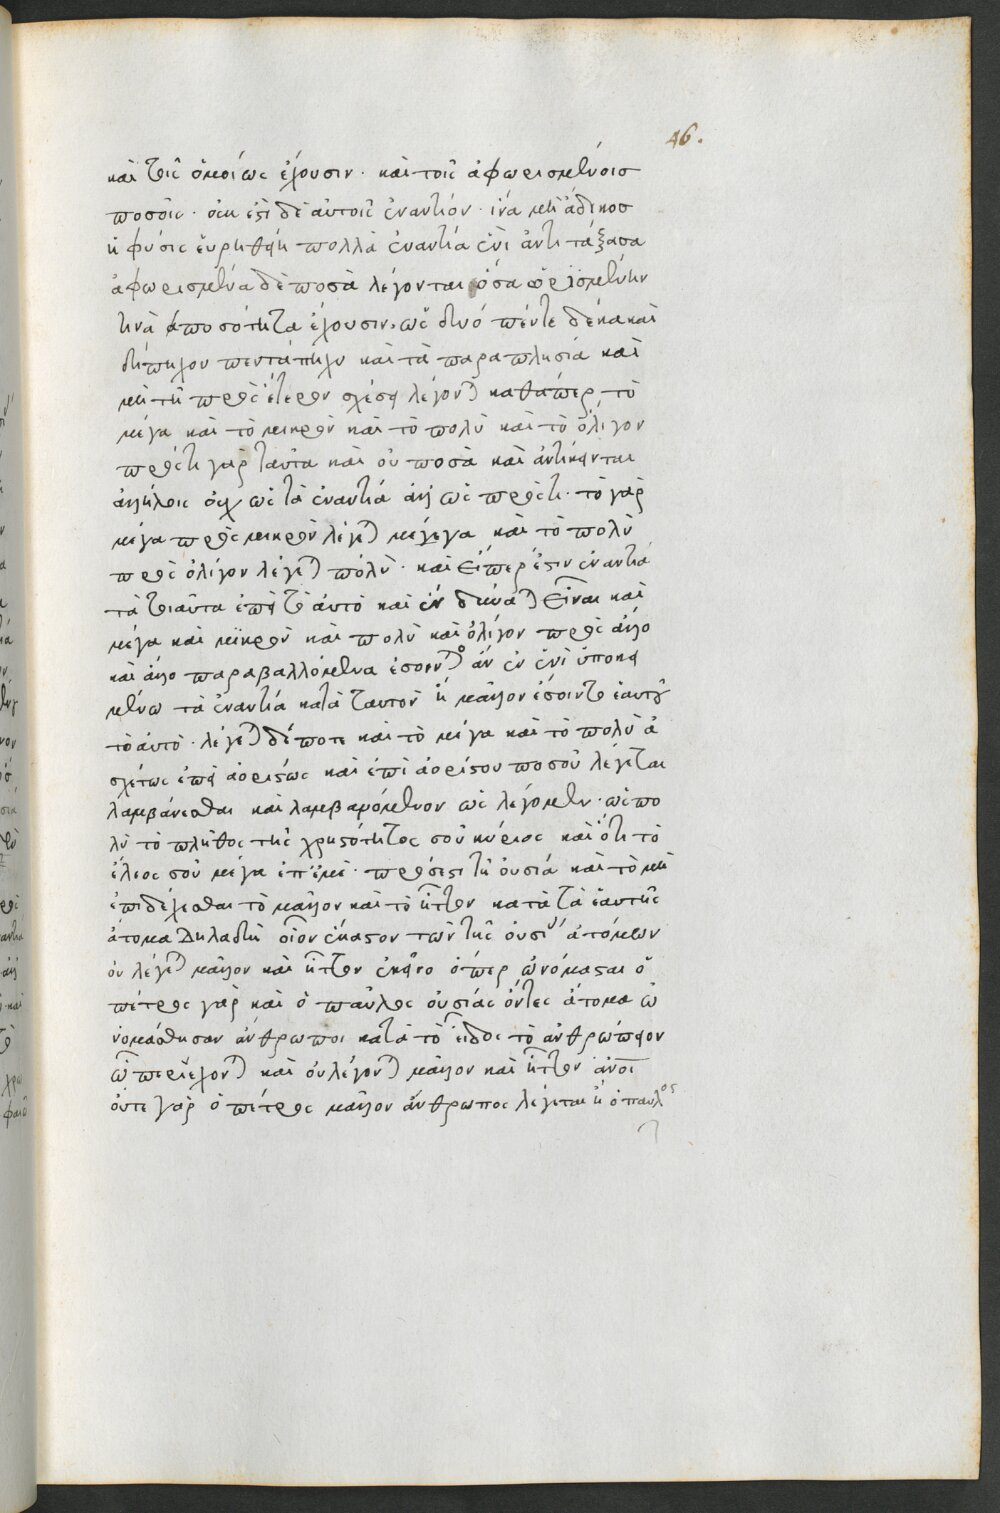 46.
καὶ τοῖς ὁμοίως ἔχουσιν · καὶ τοῖς ἀφωρισμένοισ
ποσοῖς · οὐκ ἔστι δὲ αὐτοῖς ἐναντιόν · ἵνα μὴ ἄδικοσ
ἡ φύσις εὑρηθῆ πολλὰ ἐναντία ἑνὶ ἀντιτάξασα
ἀφωρισμένα δὲ ποσὰ λέγονται ὅσα ὡρισμένην
τινὰ ποσότητα ἔχουσιν, ὡς δύο πέντε δέκα καὶ
δίπηχυ πεντάπηχυ καὶ τὰ παραπλησία καὶ
μὴ τῆ πρὸς ἕτερον σχέσει λέγονται καθάπερ τὸ
μέγα καὶ τὸ μικρὸν καὶ τὸ πολὺ καὶ τὸ ὀλίγον
πρόστι γὰρ ταῦτα καὶ οὐ ποσὰ καὶ ἀντίκεινται
ἀλλήλοις οὐχ ὡς τὰ ἐναντία ἀλλ ὡς πρόστι · τὸ γὰρ
μέγα πρὸς μικρὸν λέγεται μέγα καὶ τὸ πολὺ
πρὸς ὀλίγον λέγεται πολὺ · καὶ εἴπερ ἐστιν ἐναντία
τὰ τοιαῦτα ἐπεὶ τὸ αὐτὸ καὶ ἓν δύναται εἶναι καὶ
μέγα καὶ μικρὸν καὶ πολὺ καὶ ὀλίγον πρὸς ἄλλο
καὶ ἄλλο παραβαλλόμενα ἔσονται ἂν ἐν ἑνὶ ὑποκει
μένω τὰ ἐναντία κατὰ ταυτὸν ἢ μᾶλλον ἔσοιντο ἑαυτοῦ
τὸ αὐτὸ · λέγεται δέ ποτε καὶ τὸ μέγα καὶ τὸ πολὺ ἀ
σχέτως ἐπεὶ ἀορίστως καὶ ἐπὶ ἀορίστου ποσοῦ λέγεται
λαμβάνεσθαι καὶ λαμβανόμενον ὡς λέγομεν · ὡς πο
λὺ τὸ πλῆθος τῆς χρηστότητος σοῦ κύριος καὶ ὅτι τὸ
ἔλεος σοῦ μέγα ἐπ ἐμέ · πρόσεστι τῆ οὐσία καὶ τὸ μὴ
ἐπιδέχεσθαι τὸ μᾶλλον καὶ τὸ ἧττον κατὰ τὰ ἑαυτῆς
ἄτομα δηλαδὴ οἷον ἕκαστον τῶν τῆς οὐσίας ἀτόμων
οὐ λέγεται μᾶλλον καὶ ἧττον ἐκεῖνο ὅπερ ὠνόμασται ὁ
πέτρος γὰρ καὶ ὁ παῦλος οὐσίας ὄντες ἄτομα ὠ
νομάσθησαν ἄνθρωποι κατὰ τὸ εἶδος τὸ ἀνθρώπειον
ὧ περιέχονται καὶ οὐ λέγονται μᾶλλον καὶ ἧττον ἄνοι
οὔτε γὰρ ὁ πέτρος μᾶλλον ἄνθρωπος λέγεται ἢ ὁ παυλος